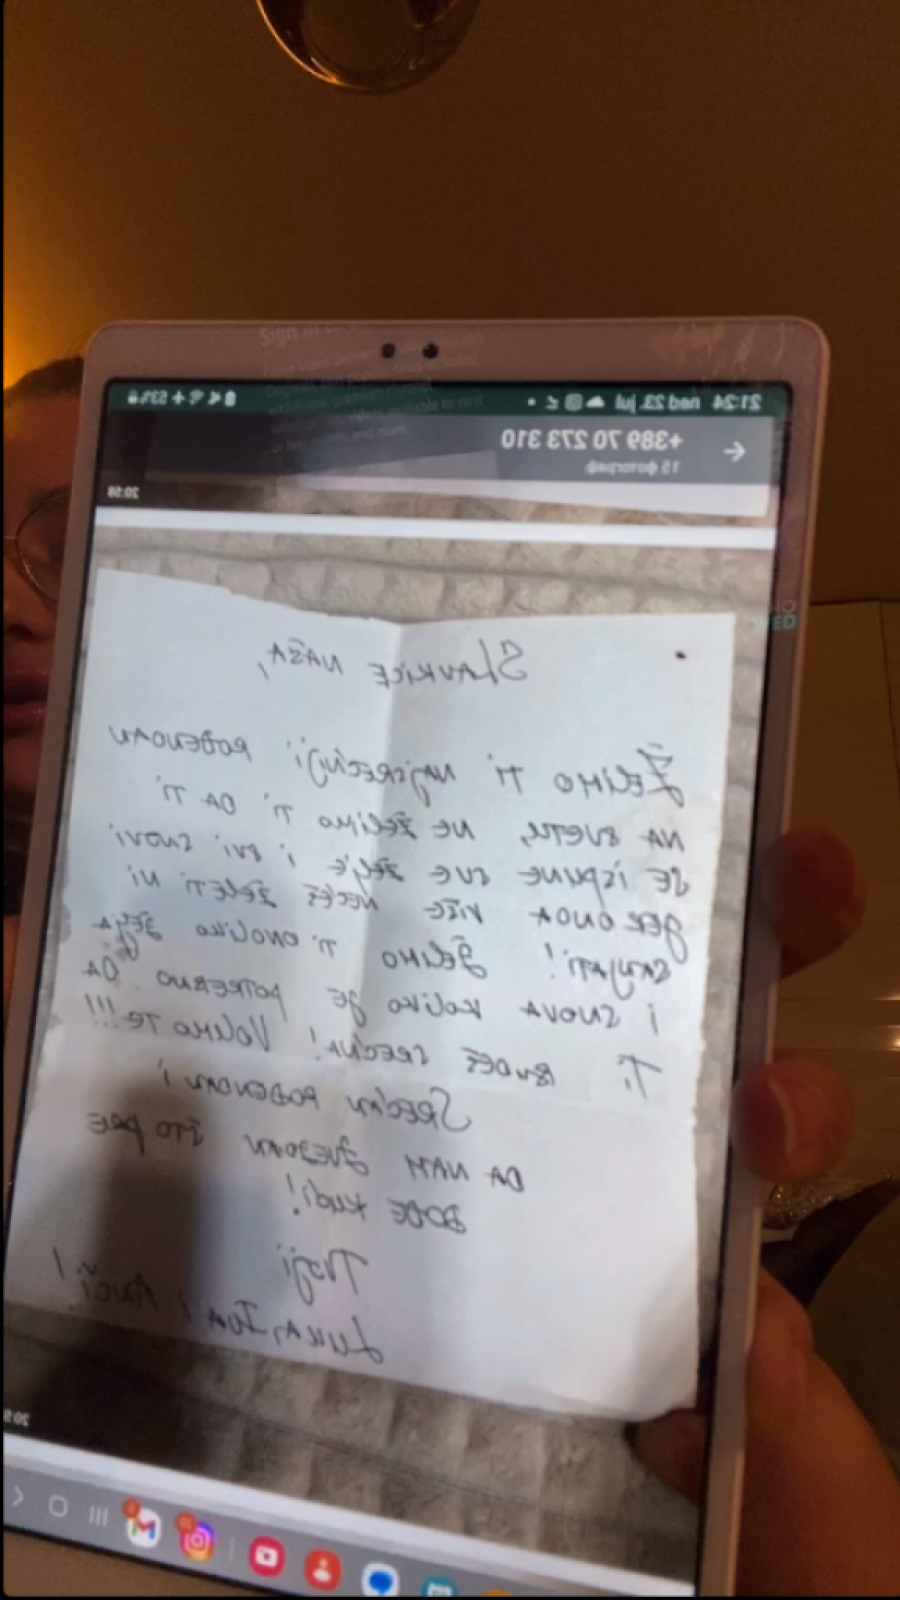 21:24 ned 23. jul
53%
+389 70 273 310
15 фотограф.
20:58
SLAVKICE NAŠA,
ŽELIMO TI NAJSREĆNJI ROĐENDAN
NA SVETU, NE ŽELIMO TI DA TI
SE ISPUNE SVE ŽELJE I SVI SNOVI
JER ONDA VIŠE NEĆEŠ ŽELETI NI
SANJATI! ŽELIMO TI ONOLIKO ŽELJA
I SNOVA KOLIKO JE POTREBNO DA
TI BUDEŠ SREĆNA! VOLIMO TE!!!
SREĆAN ROĐENDAN I
DA NAM JEDAN ŠTO PRE
DOĐE KUĆI!
TVOJI
LUKA, IVA I ANČI!